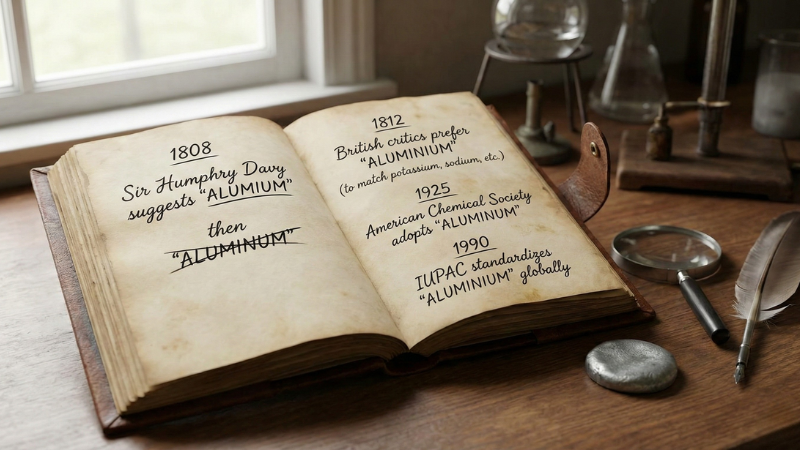 1808
Sir Humphry Davy
suggests "ALUMIUM"
then
"ALUMINUM"
1812
British critics prefer
"ALUMINIUM"
(to match potassium, sodium, etc.)
1925
American Chemical Society
adopts "ALUMINUM"
1990
IUPAC standardizes
"ALUMINIUM" globally